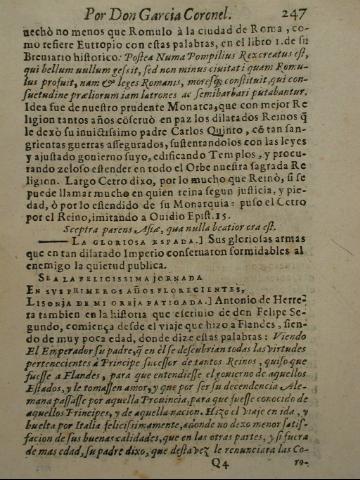 Por Don Garcia Coronel. 247
uechò no menos que Romulo à la ciudad de Roma, co-
mo refiere Eutropio con estas palabras, en el libro 1. de su
Breuiario historico: Postea Numa Pompilius Rex creatus est,
qui bellum nullum gessit, sed non minus ciuitati quàm Romu-
lus profuit, nam & leges Romanis, moresq́; constituit, qui con-
suetudine præliorum iam latrones ac semibarbari putabantur.
Idea fue de nuestro prudente Monarca, que con mejor Re
ligion tantos años cōseruò en paz los dilatados Reinos q̄
le dexò su inuictissimo padre Carlos Quinto, cō tan san-
grientas guerras assegurados, sustentandolos con las leyes
y ajustado gouierno suyo, edificando Templos, y procu-
rando zeloso estender en todo el Orbe nuestra sagrada Re
ligion. Largo Cetro dixo, por lo mucho que Reinò, si se
puede llamar mucho en quien reina segun justicia, y pie-
dad, ò por lo estendido de su Monarquia: puso el Cetro
por el Reino, imitando a Ouidio Epist. 15.
Sceptra parens Asiæ, qua nulla beatior ora est.
LA GLORIOSA ESPADA.] Sus gloriosas armas
que en tan dilatado Imperio conseruaron formidables al
enemigo la quietud publica.
SEA LA FELICISSIMA JORNADA
EN SVS PRIMEROS AÑOS FLORECIENTES,
LISONJA DE MI OREJA FATIGADA.] Antonio de Herre-
ra tambien en la historia que escriuio de don Felipe Se-
gundo, comiença desde el viaje que hizo a Flandes, sien-
do de muy poca edad, donde dize estas palabras: Viendo
El Emperador su padre, q̄ en èl se descubrian todas las virtudes
pertenecientes a Principe sucessor de tantos Reinos, quiso que
fuesse a Flandes, para que entendiesse el gouierno de aquellos
Estados, y le tomassen amor, y que por ser su decendencia Ale-
mana passasse por aquella Prouincia, para que fuesse conocido de
aquellos Principes, y de aquella nacion. Hizo el viaje en ida, y
buelta por Italia felicissimamente, adonde no dexo menor satis-
facion de sus buenas calidades, que en las otras partes, y si fuera
de mas edad, su padre dixo, que desta vez le renunciara las Co-
Q4 ro-